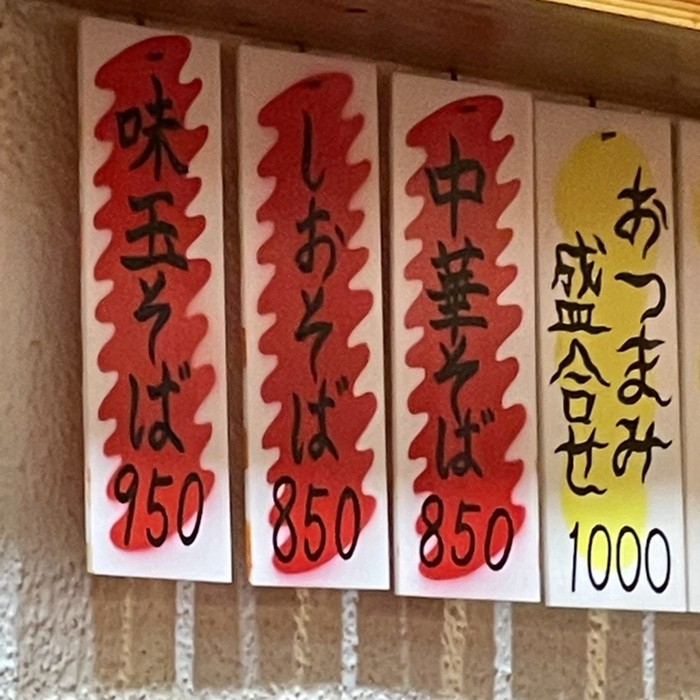 味玉そば
950
しおそば
850
中華そば
850
おつまみ
盛合せ
1000